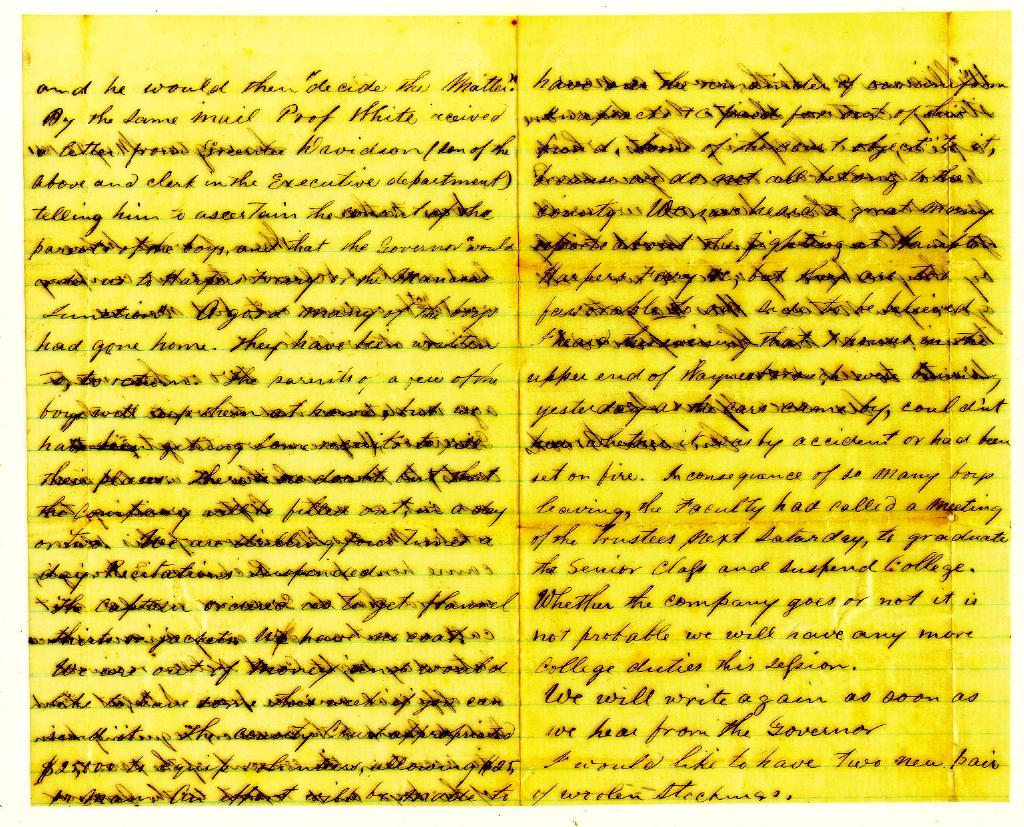 and he would then "decide the Matter."
By the same mail Prof White received
a letter from Greenlee Davidson (son of the
above and clerk in the Executive department)
telling him to ascertain the consent of the
parents of the boys, and that the Governor "would
order us to Harpers Ferry or the Manassas
Junction." A good many of the boys
had gone home. They have been written
to, to return. The parents of a few of the
boys will keep them at home, but we
have been getting some recruits to fill
their places. There is no doubt but that
the Company will be filled out in a day
or two. We are drilling four times a
day. Recitations suspended.
The captain ordered us to get flannel
shirts or jackets. We have no coats
We are out of money, and would
like to have some this week if you can
send it. The County Court appropriated
$25,000 to equip volunteers, allowing $25,
pr man. An effort will be made to
have the remainder of our uniform
out of this
fund, some of the court object to it,
because we do not all belong to the
county. We have heard a great many
reports about the fighting at Hampton
Harpers Ferry &c, but they are too
favorable to our side to be believed
I heard this evening that houses in the
upper end of Waynesboro, were burned,
yesterday as the cars came by, could n't
hear whether it was by accident or had been
set on fire. In consequence of so many boys
leaving, the Faculty had called a meeting
of the trustees next Saturday, to graduate
the Senior Class and suspend College.
Whether the company goes or not it is
not probable we will have any more
College duties this session.
We will write again as soon as
we hear from the Governor
I would like to have two new pair
of woolen stockings.